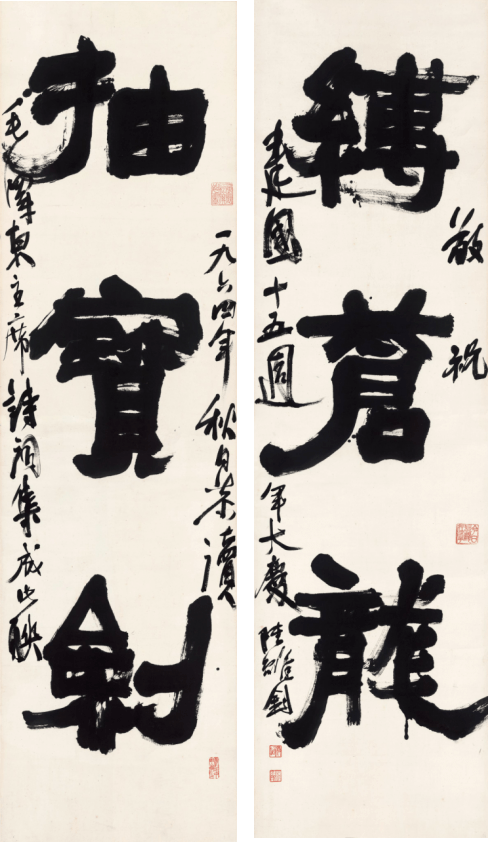 抽寶劍
一九六四年秋日恭讀
毛澤東主席詩詞集成此聯
縛蒼龍
敬祝
建國十五週年大慶 陸維釗